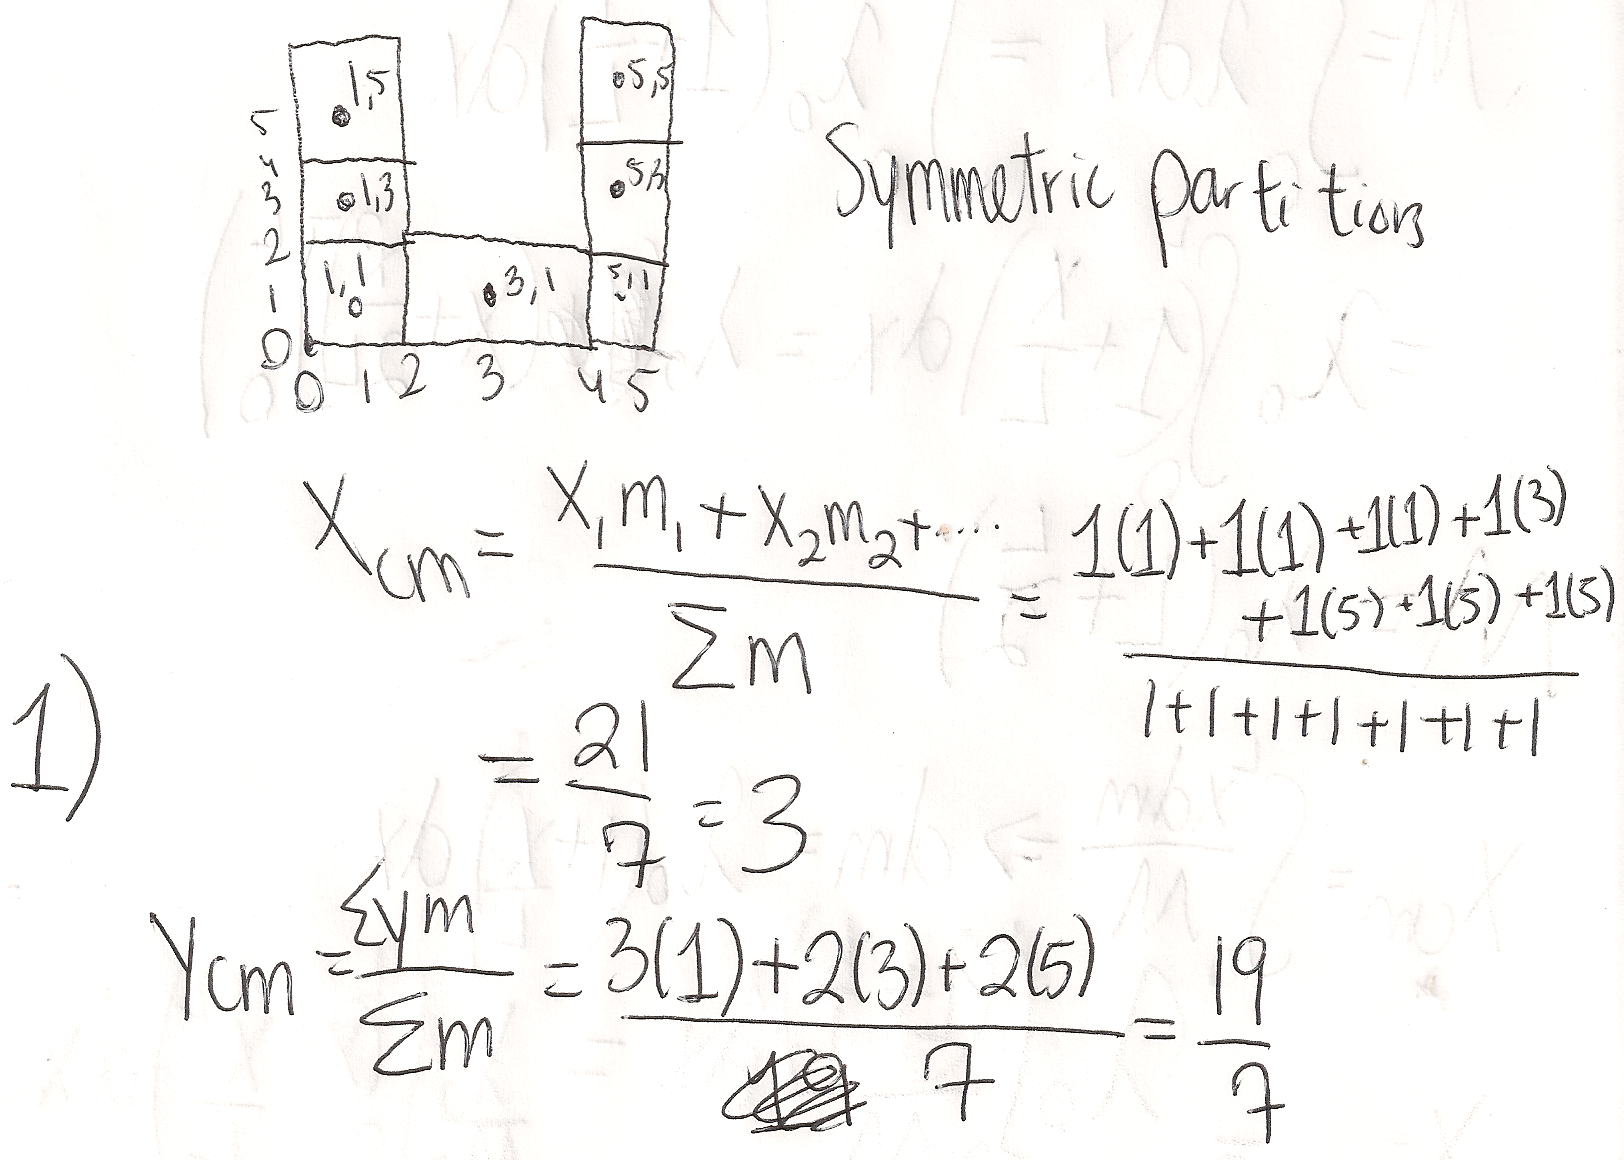 1,5
5,5
5
4
1,3
5,3
3
2
1,1
3,1
5,1
1
0
0 1 2 3 4 5
Symmetric partitions
Xcm = X₁m₁ + X₂m₂ + .... / Σm = 1(1)+1(1)+1(1)+1(3)
+1(5)+1(5)+1(5) / 1+1+1+1+1+1+1
1)
= 21/7 = 3
Ycm = Σym / Σm = 3(1)+2(3)+2(5) / 7 = 19/7